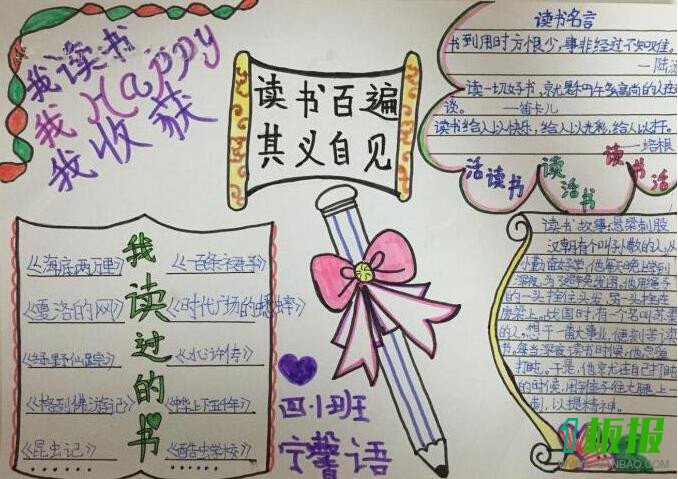 我读书
我Happy
我收获
读书百遍
其义自见
读书名言
书到用时方恨少,事非经过不知难。
—陆游
读一切好书,就是和许多高尚的人在
谈。 —笛卡儿
读书给人以快乐,给人以光彩,给人以才干。
—培根
活读书
读活书
读书活
我读过的书
《海底两万里》
《一百条裙子》
《夏洛的网》
《时代广场的蟋蟀》
《绿野仙踪》
《水浒传》
《格列佛游记》
《中华上下五千年》
《昆虫记》
《酷虫学校》
四小班
宁馨语
读书故事:悬梁刺股
汉朝有个叫孙敬的人,从
小勤奋好学,他每天晚上学到
深夜,为了避免犯困,他用绳子
的一头拴住头发,另一头拴在
房梁上。战国时,有一个名叫苏秦
的人,想干一番大事业,便刻苦读
书。每当深夜读书时候,他总爱
打盹。于是,他就在自己打盹
的时候,用锥子往大腿上一
刺,以提精神。
板报